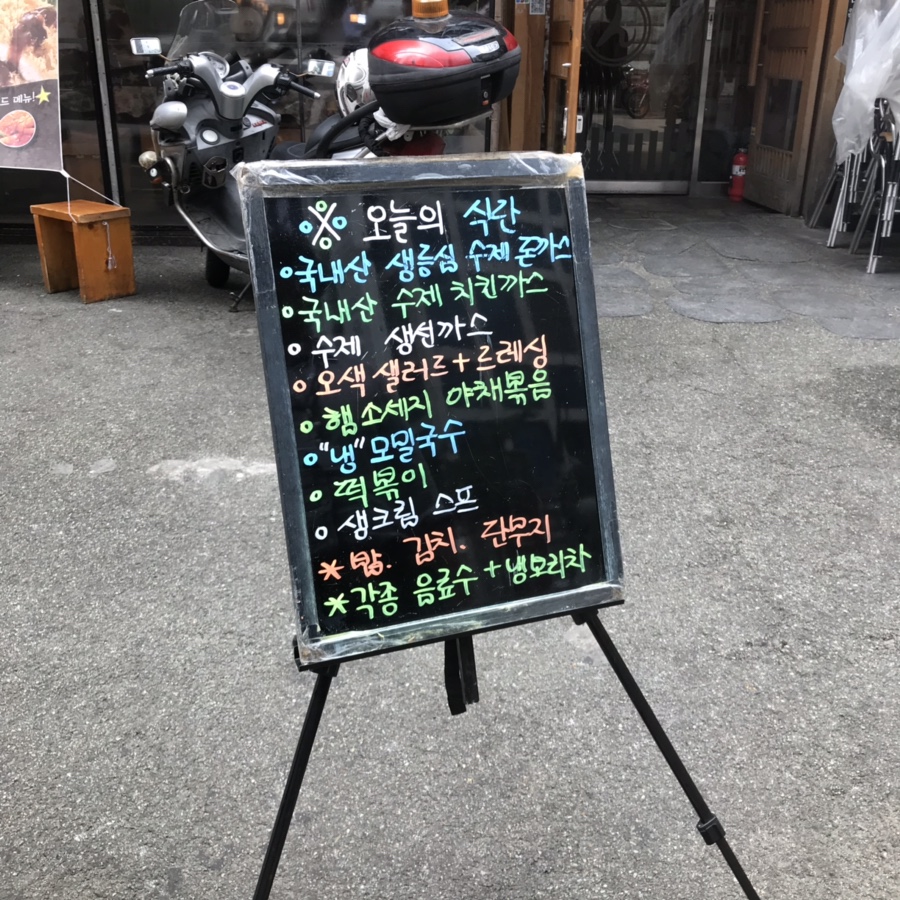 드 메뉴!
※ 오늘의 식단
국내산 생등심 수제 돈까스
국내산 수제 치킨까스
수제 생선까스
오색 샐러드+드레싱
햄소세지 야채볶음
"냉"모밀국수
떡볶이
생크림 스프
*밥. 김치. 단무지
*각종 음료수+냉보리차